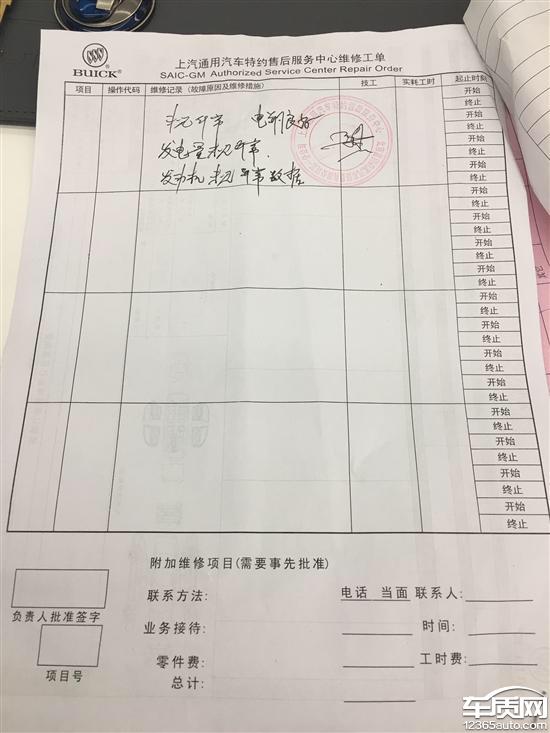 上汽通用汽车特约售后服务中心维修工单
BUICK® SAIC-GM Authorized Service Center Repair Order
项目 操作代码 维修记录（故障原因及维修措施） 技工 实耗工时 起止时刻
开始
终止
开始
终止
开始
终止
开始
终止
开始
终止
开始
终止
开始
终止
开始
终止
开始
终止
开始
终止
开始
终止
开始
终止
开始
终止
开始
终止
开始
终止
开始
终止
电瓶良好
发电量
发动机 数据
附加维修项目(需要事先批准)
负责人批准签字
项目号
联系方法: 电话 当面 联系人:
业务接待: 时间:
零件费: 工时费:
总计:
车质网
12365auto.com